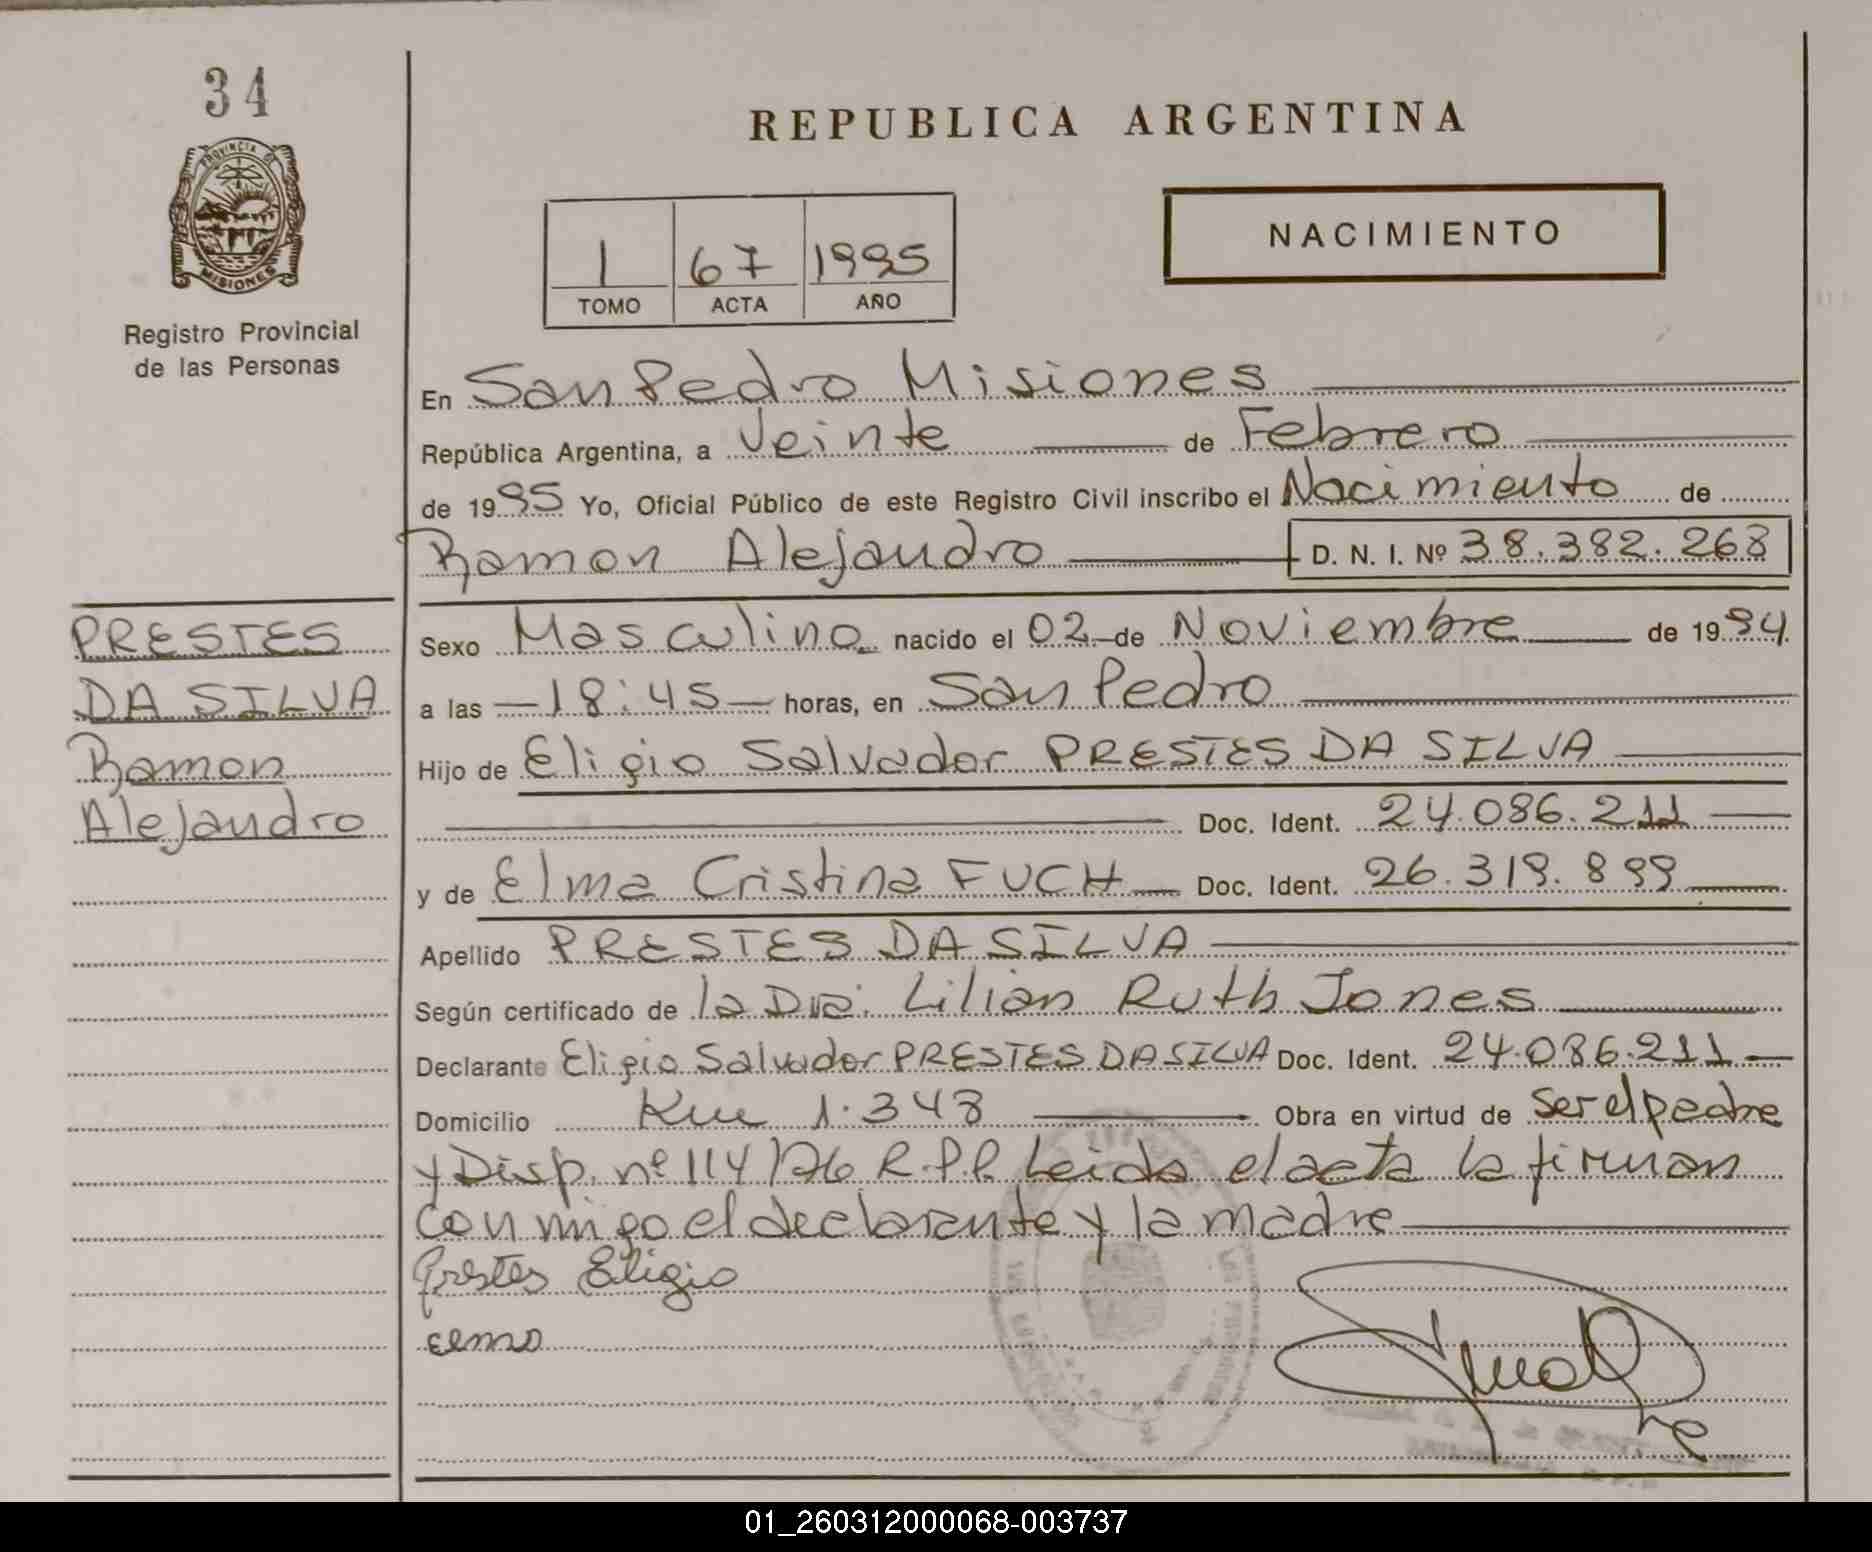 34
PROVINCIA DE
MISIONES
Registro Provincial
de las Personas
REPUBLICA ARGENTINA
NACIMIENTO
1 67 1995
TOMO ACTA AÑO
En San Pedro Misiones
República Argentina, a Veinte de Febrero
de 1995 Yo, Oficial Público de este Registro Civil inscribo el Nacimiento de
Ramon Alejandro D. N. I. Nº 38.382.268
PRESTES
DA SILVA
Ramon
Alejandro
Sexo Masculino nacido el 02 de Noviembre de 1994
a las 18:45 horas, en San Pedro
Hijo de Eligio Salvador PRESTES DA SILVA
Doc. Ident. 24.086.211
y de Elma Cristina FUCH Doc. Ident. 26.319.899
Apellido PRESTES DA SILVA
Según certificado de la Dra. Lilian Ruth Jones
Declarante Eligio Salvador PRESTES DA SILVA Doc. Ident. 24.086.211
Domicilio Km 1.348 Obra en virtud de ser el padre
y Disp. nº 114/76 R.P.P. Leida el acta la firman
conmigo el declarante y la madre
Prestes Eligio
01_260312000068-003737